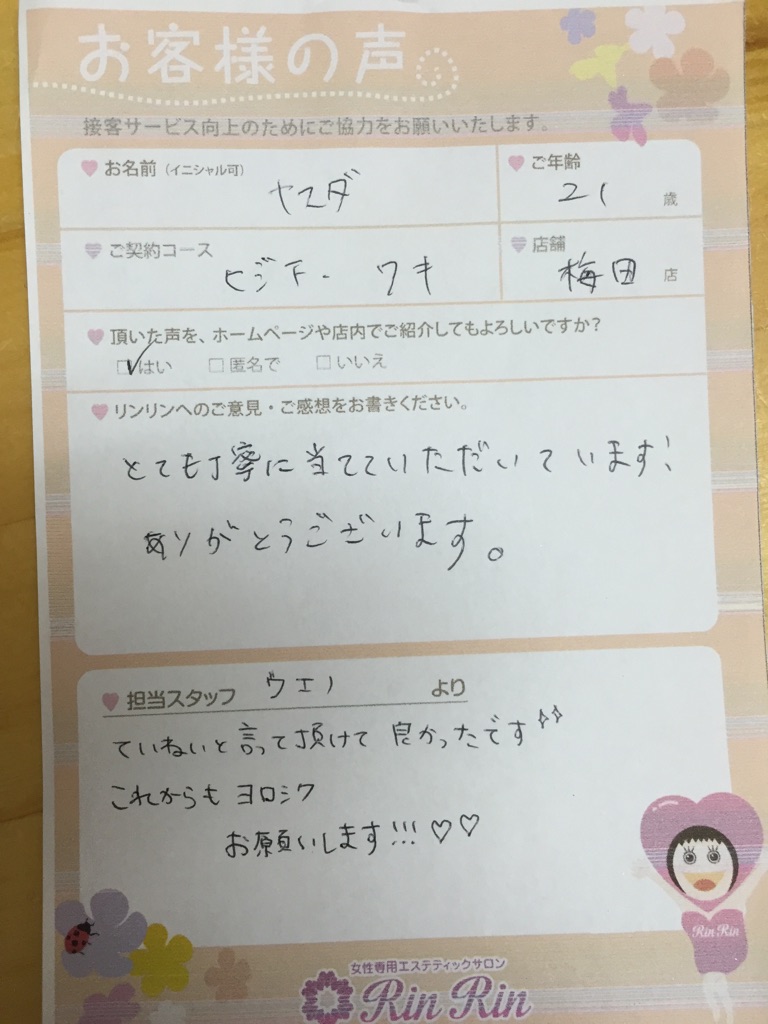 お客様の声
接客サービス向上のためにご協力をお願いいたします。
お名前(イニシャル可)
ヤスダ
ご年齢
21 歳
ご契約コース
ヒジ下・ワキ
店舗
梅田 店
頂いた声を、ホームページや店内でご紹介してもよろしいですか?
はい 匿名で いいえ
リンリンへのご意見・ご感想をお書きください。
とても丁寧に当てていただいています!
ありがとうございます。
担当スタッフ ウエノ より
ていねいと言って頂けて 良かったです
これからも ヨロシク
お願いします!!!♡♡
Rin Rin
女性専用エステティックサロン
Rin Rin